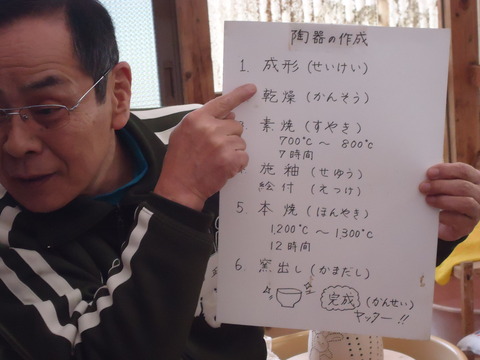 陶器の作成
1. 成形 (せいけい)
乾燥 (かんそう)
素焼 (すやき)
700℃ ～ 800℃
7時間
施釉 (せゆう)
絵付 (えつけ)
5. 本焼 (ほんやき)
1,200℃ ～ 1,300℃
12時間
6. 窯出し (かまだし)
完成 (かんせい)
ヤッター!!